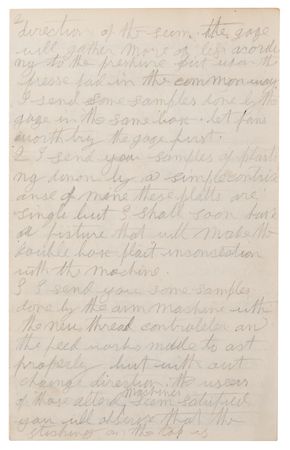 2
direction of the seam. the gage
will gather more or less acording
ng to the preshure put upon the
presse pad in the common way
I send some samples done by the
gage in the same box. let
worth try the gage first.
2 I send you samples of plait
ng done by a simple contriv
anse of mine these plaits are
single but I shall soon have
a fixture that will make the
double box plait in
with the machine.
3 I send you some samples
done by the arm machine with
the new thread controleler an
the feed works made to act
properly but with out
change direction the users
of those altered Machines seem satisfied
you will observe that the
stiching on the top is